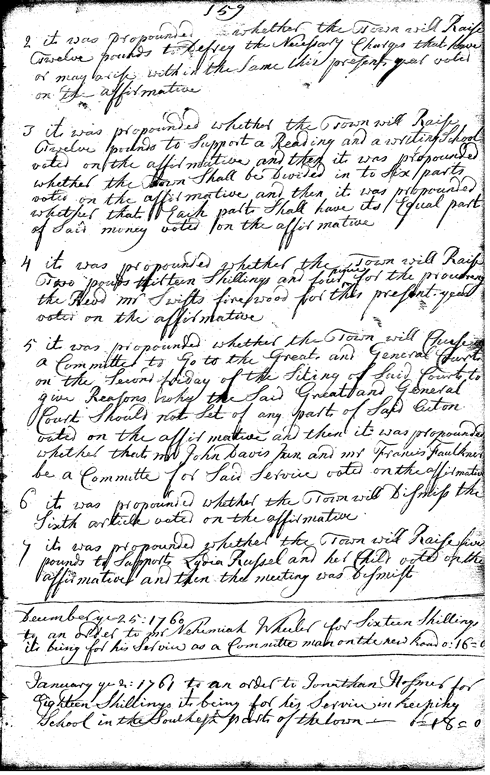 159
2 it was propounded whether the Town will Raise
Twelve pounds to Defrey the Necessary Charges that have
or may arise within the Same this present year voted
on the affirmative
3 it was propounded whether the Town will Raise
Twelve pounds to Support a Reading and a writing School
voted on the affirmative and then it was propounded
whether the Town Shall be Divided in to Six parts
voted on the affirmative and then it was propounded
whether that Each part Shall have its Equal part
of Said money voted on the affirmative
4 it was propounded whether the Town will Raise
Two pounds thirteen Shillings and four pence for the procuring
the Revd mr Swifts firewood for this present year
voted on the affirmative
5 it was propounded whether the Town will Chuse
a Committee to Go to the Great and General Court
on the Second friday of the Siting of Said Court to
give Reasons why the Said Great and General
Court Should not Set of any part of Said Acton
voted on the affirmative and then it was propounded
whether that mr John Davis Jun and mr Francis Faulkner
be a Committe for Said Service voted on the affirmative
6 it was propounded whether the Town will Dismiss the
Sixth article voted on the affirmative
7 it was propounded whether the Town will Raise five
pounds to Support Lydia Russel and her Child voted on the
affirmative and then the meeting was Dismist
December ye 25: 1760
to an order to mr Nehemiah Wheeler for Sixteen Shillings
it being for his Service as a Committe man on the new Road 0:16=0
January ye 2: 1761 to an order to Jonathan Hosmer for
Eighteen Shillings it being for his Service in keeping
School in the Southest part of the town — 0=18=0